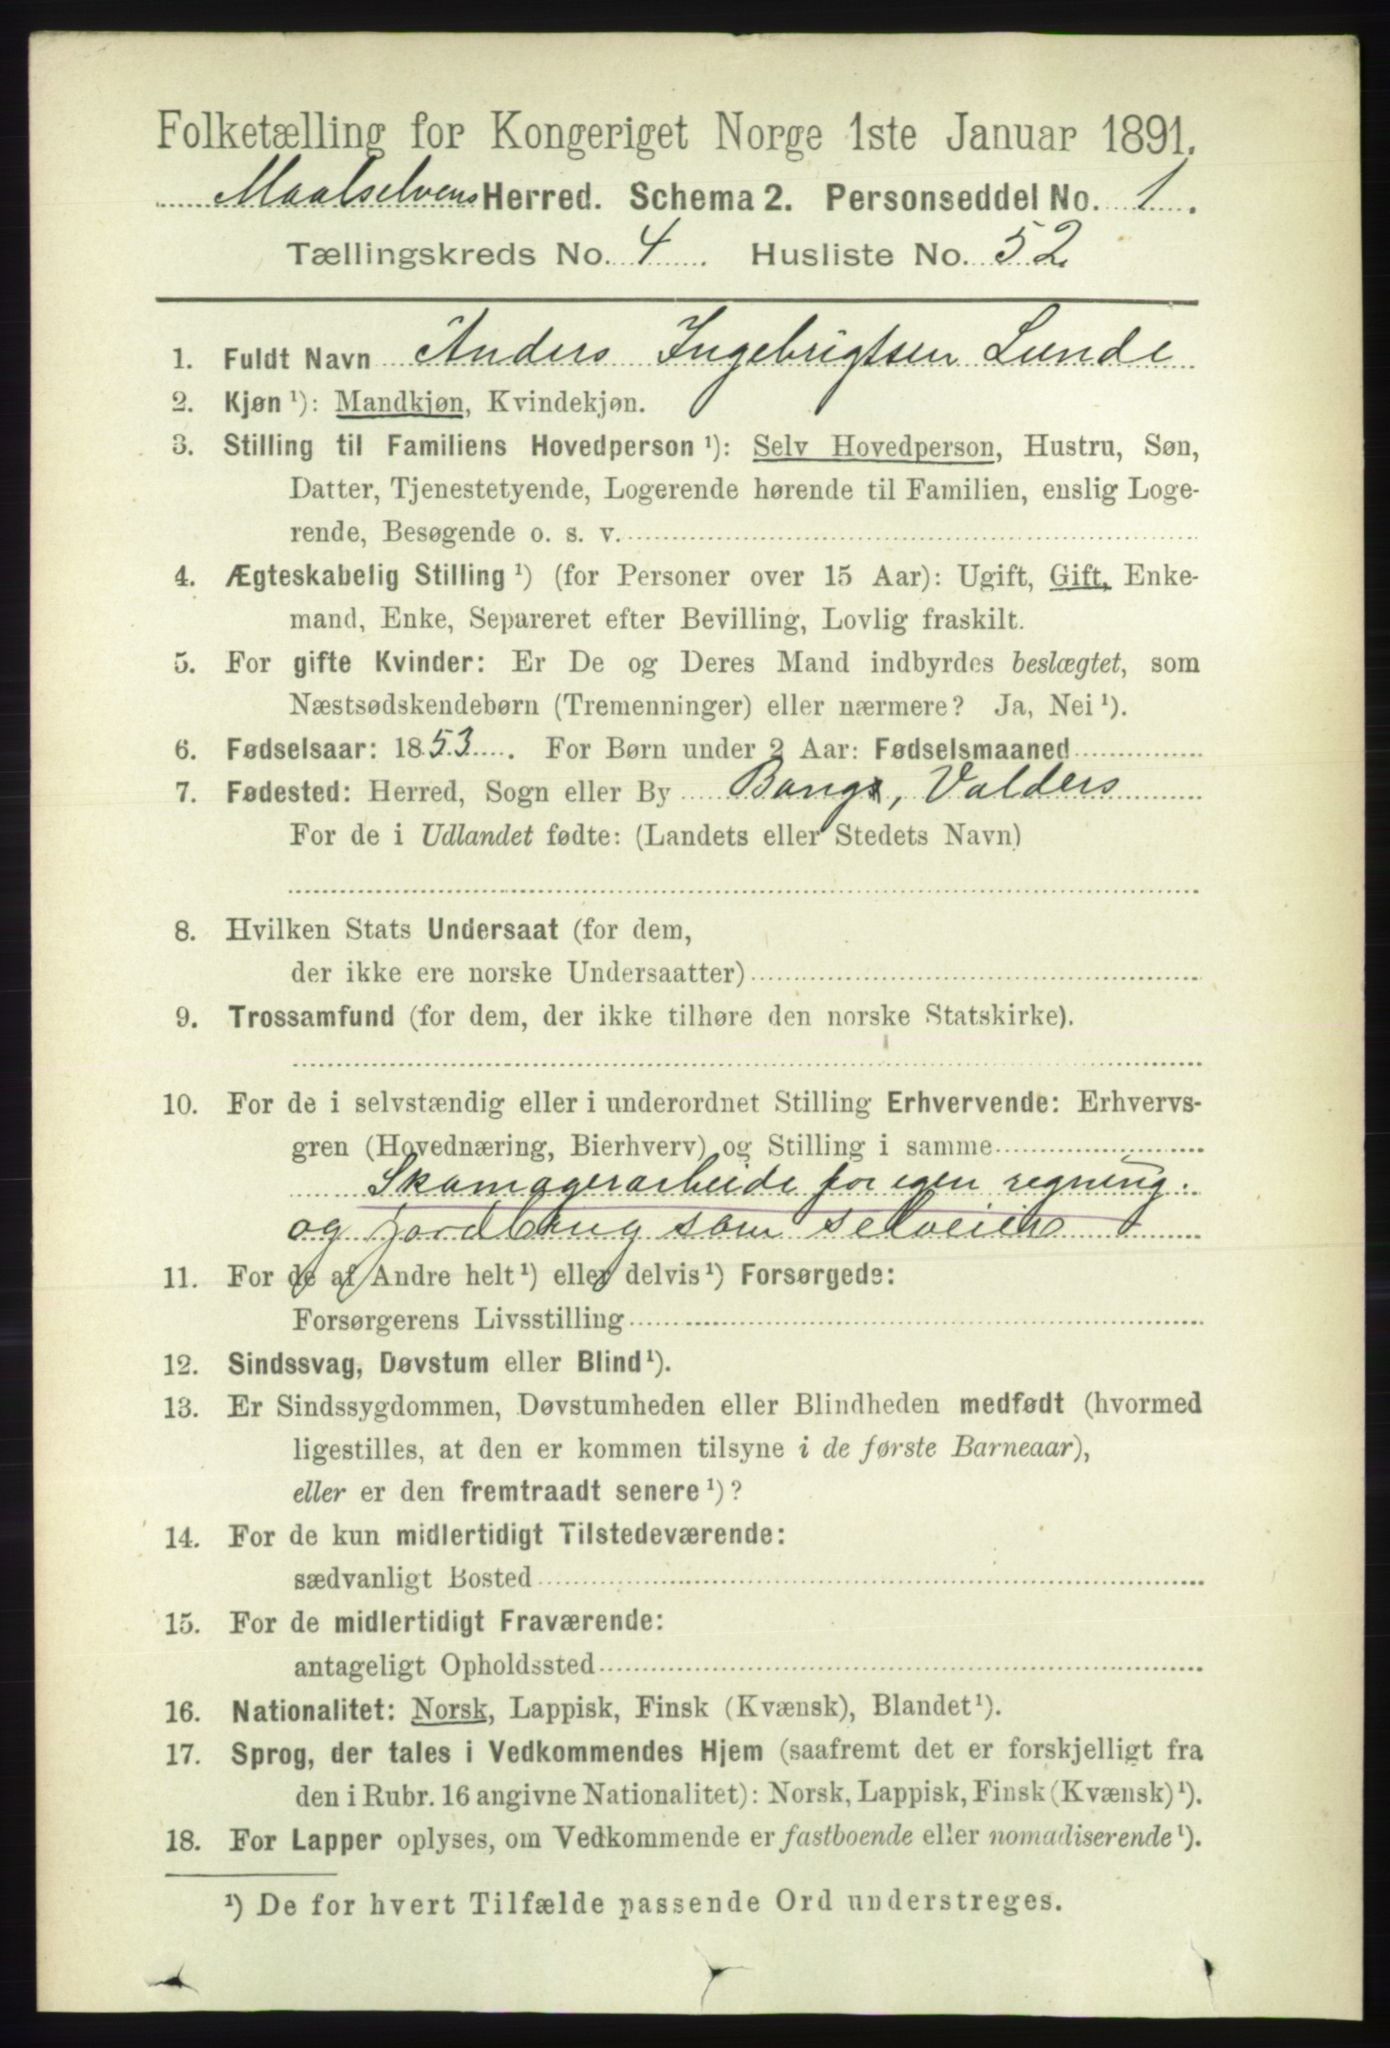 Folketælling for Kongeriget Norge 1ste Januar 1891.
Maalselvens Herred. Schema 2. Personseddel No. 1.
Tællingskreds No. 4. Husliste No. 52
1. Fuldt Navn Anders Ingebrigtsen Lunde
2. Kjøn ¹): Mandkjøn, Kvindekjøn.
3. Stilling til Familiens Hovedperson ¹): Selv Hovedperson, Hustru, Søn,
Datter, Tjenestetyende, Logerende hørende til Familien, enslig Loge-
rende, Besøgende o. s. v.
4. Ægteskabelig Stilling ¹) (for Personer over 15 Aar): Ugift, Gift, Enke-
mand, Enke, Separeret efter Bevilling, Lovlig fraskilt.
5. For gifte Kvinder: Er De og Deres Mand indbyrdes beslægtet, som
Næstsødskendebørn (Tremenninger) eller nærmere? Ja, Nei ¹).
6. Fødselsaar: 1853. For Børn under 2 Aar: Fødselsmaaned
7. Fødested: Herred, Sogn eller By Bangs, Valders
For de i Udlandet fødte: (Landets eller Stedets Navn)
8. Hvilken Stats Undersaat (for dem,
der ikke ere norske Undersaatter)
9. Trossamfund (for dem, der ikke tilhøre den norske Statskirke).
10. For de i selvstændig eller i underordnet Stilling Erhvervende: Erhvervs-
gren (Hovednæring, Bierhverv) og Stilling i samme
Skomagerarbeide for egen regning.
og jordbrug som selveier
11. For de af Andre helt ¹) eller delvis ¹) Forsørgede:
Forsørgerens Livsstilling
12. Sindssvag, Døvstum eller Blind ¹).
13. Er Sindssygdommen, Døvstumheden eller Blindheden medfødt (hvormed
ligestilles, at den er kommen tilsyne i de første Barneaar),
eller er den fremtraadt senere ¹)?
14. For de kun midlertidigt Tilstedeværende:
sædvanligt Bosted
15. For de midlertidigt Fraværende:
antageligt Opholdssted
16. Nationalitet: Norsk, Lappisk, Finsk (Kvænsk), Blandet ¹).
17. Sprog, der tales i Vedkommendes Hjem (saafremt det er forskjelligt fra
den i Rubr. 16 angivne Nationalitet): Norsk, Lappisk, Finsk (Kvænsk) ¹).
18. For Lapper oplyses, om Vedkommende er fastboende eller nomadiserende ¹).
¹) De for hvert Tilfælde passende Ord understreges.